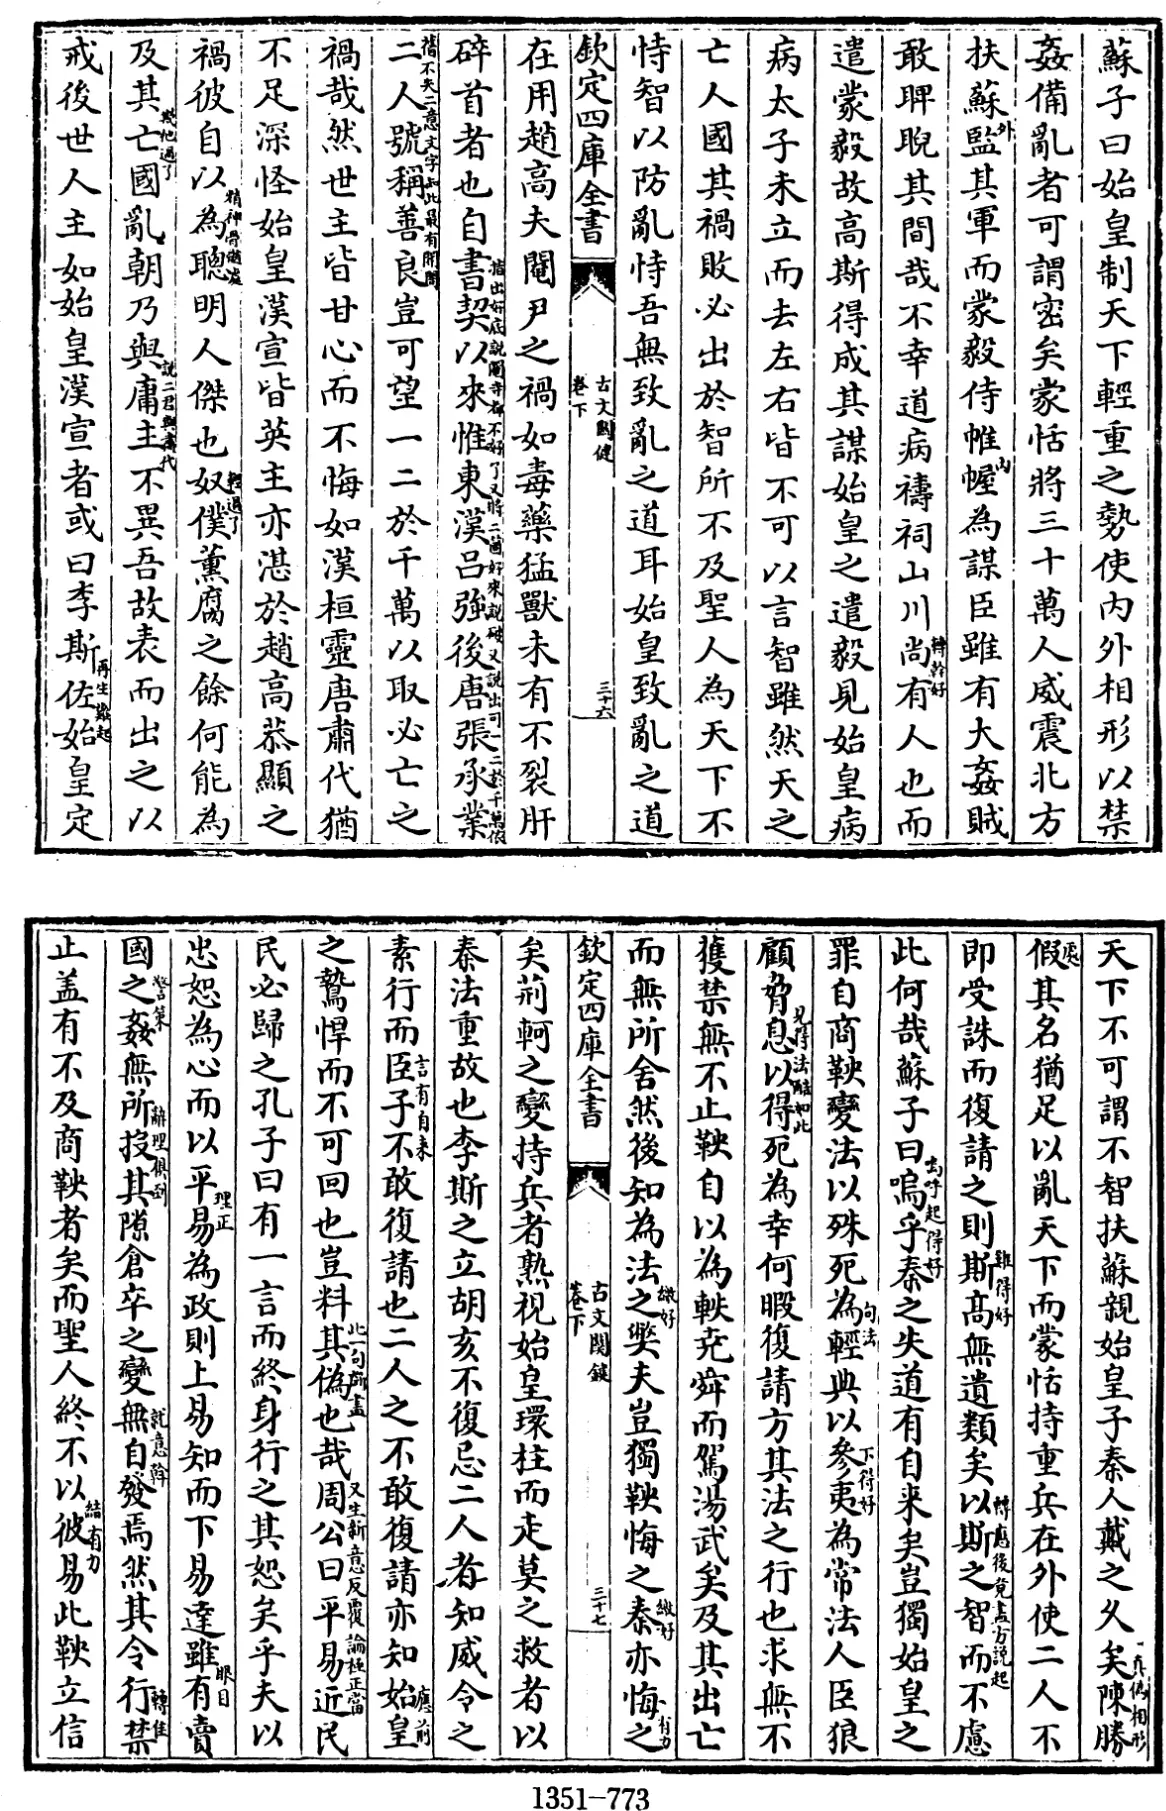 蘇子曰始皇制天下輕重之勢使内外相形以禁
姦備亂者可謂密矣蒙恬將三十萬人威震北方
扶蘇監其軍而蒙毅侍帷幄為謀臣雖有大姦賊
外
内
敢睥睨其間哉不幸道病禱祠山川尚有人也而
轉幹好
遣蒙毅故高斯得成其謀始皇之遣毅見始皇病
病太子未立而去左右皆不可以言智雖然天之
亡人國其禍敗必出於智所不及聖人為天下不
恃智以防亂恃吾無致亂之道耳始皇致亂之道
欽定四庫全書
古文關鍵
卷下
三十六
在用趙高夫閹尹之禍如毒藥猛獸未有不裂肝
碎首者也自書契以來惟東漢呂強後唐張承業
指出好底說閹寺都不好了又將二箇好來說破又說出可一二於千萬依
二人號稱善良豈可望一二於千萬以取必亡之
舊不失二意文字如此最有開闔
禍哉然世主皆甘心而不悔如漢桓靈唐肅代猶
不足深怪始皇漢宣皆英主亦湛於趙高恭顯之
禍彼自以為聰明人傑也奴僕薰腐之餘何能為
精神骨髓處
輕過了
及其亡國亂朝乃與庸主不異吾故表而出之以
他過了
說二君與肅代
戒後世人主如始皇漢宣者或曰李斯佐始皇定
再生難起
天下不可謂不智扶蘇親始皇子秦人戴之乆矣陳勝
真偽相形
假其名猶足以亂天下而蒙恬持重兵在外使二人不
處
即受誅而復請之則斯髙無遺類矣以斯之智而不慮
難得好
轉應後竟盡方説起
此何哉蘇子曰嗚乎秦之失道有自来矣豈獨始皇之
嗚呼起得好
罪自商鞅變法以殊死為輕典以參夷為常法人臣狼
句法
下得好
顧脅息以得死為幸何暇復請方其法之行也求無不
見得法酷如此
獲禁無不止鞅自以為軼堯舜而駕湯武矣及其出亡
而無所舍然後知為法之獘夫豈獨鞅悔之秦亦悔之
繳好
繳好
有力
欽定四庫全書
古文關鍵
卷下
三十七
矣荊軻之變持兵者熟視始皇環柱而走莫之救者以
秦法重故也李斯之立胡亥不復忌二人者知威令之
素行而臣子不敢復請也二人之不敢復請亦知始皇
言有自来
應前
之鷙悍而不可回也豈料其偽也哉周公曰平易近民
此一句斷盡
又生新意反覆論極正當
民必歸之孔子曰有一言而終身行之其恕矣乎夫以
忠恕為心而以平易為政則上易知而下易達雖有賣
理正
眼目
國之姦無所投其隙倉卒之變無自發焉然其令行禁
警策
辭理俱到
就意斡
轉佳
止盖有不及商鞅者矣而聖人終不以彼易此鞅立信
結有力
1351-773